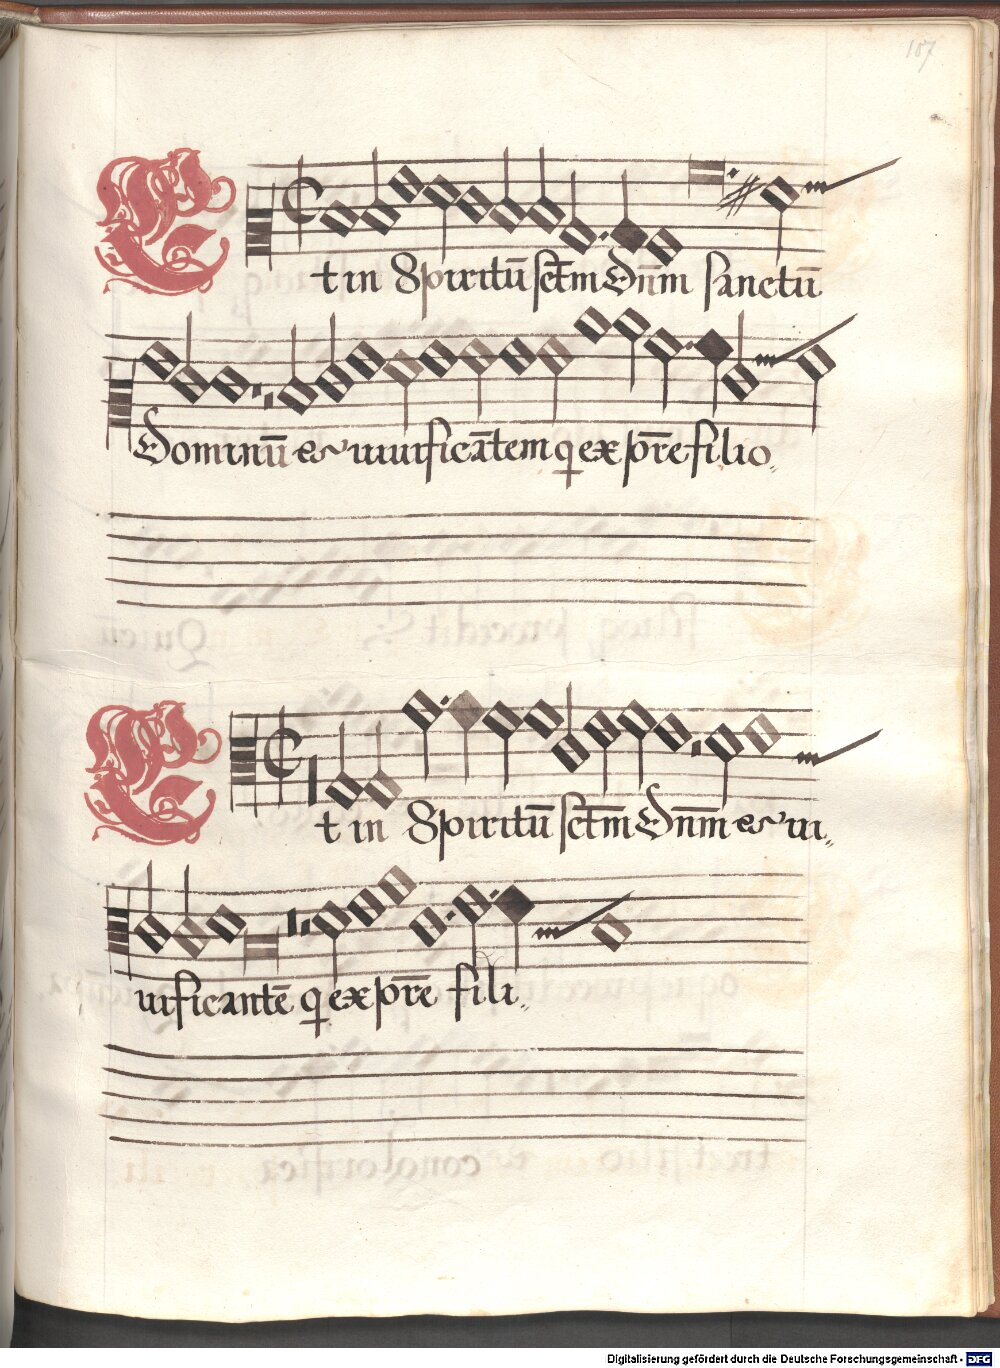 107
Et in Spiritū sct̄m Dn̄m sanctū
Dominū et viuificātem q ex pr̄e filio
Et in Spiritū sct̄m Dn̄m et vi
uificantē q ex pr̄e fili
Digitalisierung gefördert durch die Deutsche Forschungsgemeinschaft - DFG